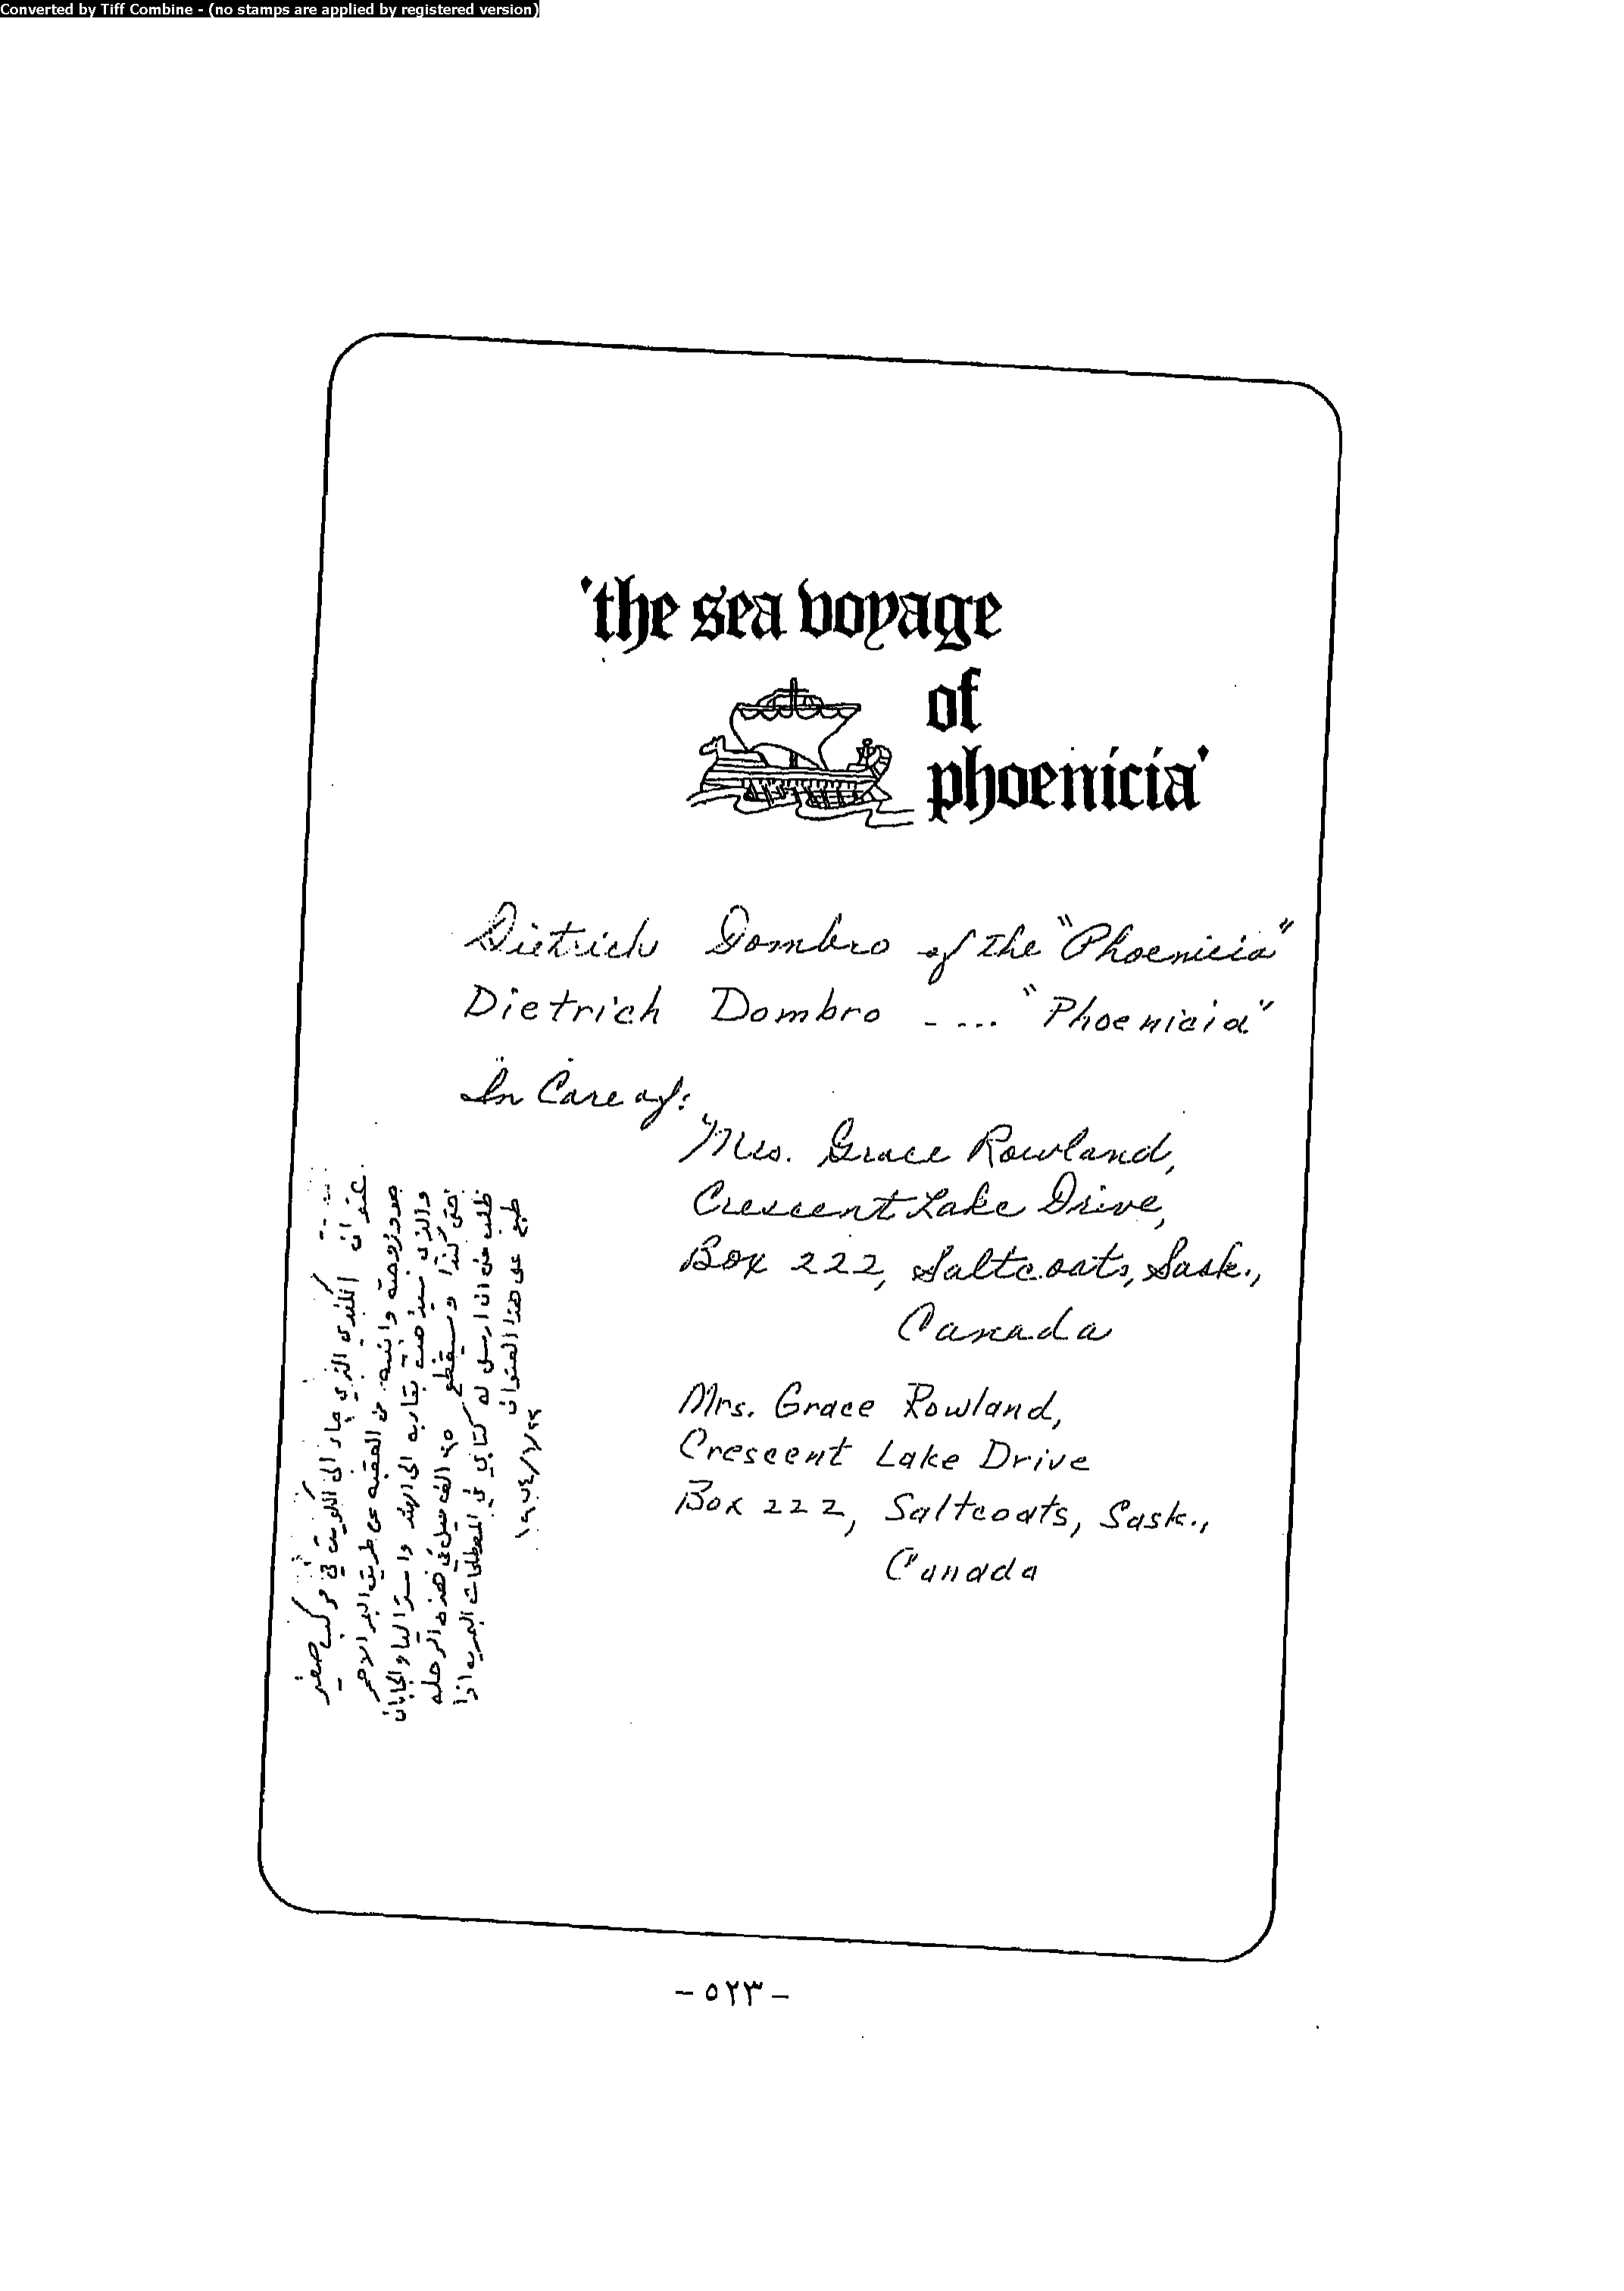 Converted by Tiff Combine - (no stamps are applied by registered version)
'the sea voyage
of
phoenicia'
Dietrich Dombro of the "Phoenicia"
Dietrich Dombro - .... "Phoenicia"
In Care of:
Mrs. Grace Rowland,
Crescent Lake Drive,
Box 222, Saltcoats, Sask.,
Canada
Mrs. Grace Rowland,
Crescent Lake Drive
Box 222, Saltcoats, Sask.,
Canada
عنوان الكندي الذي جاء الى الكويت في مركب صغير
هو وزوجته وابنته من العقبه عن طريق البحر الاحمر
والذي سيذهب بقاربه الى الهند واستراليا واليابان
حتى كندا وسيقطع الف ميل في هذه الرحله
طلب مني ان ارسل له كتابي في المصطلحات البحريه اذا
طبع على هذا العنوان
- ٥٢٣ -